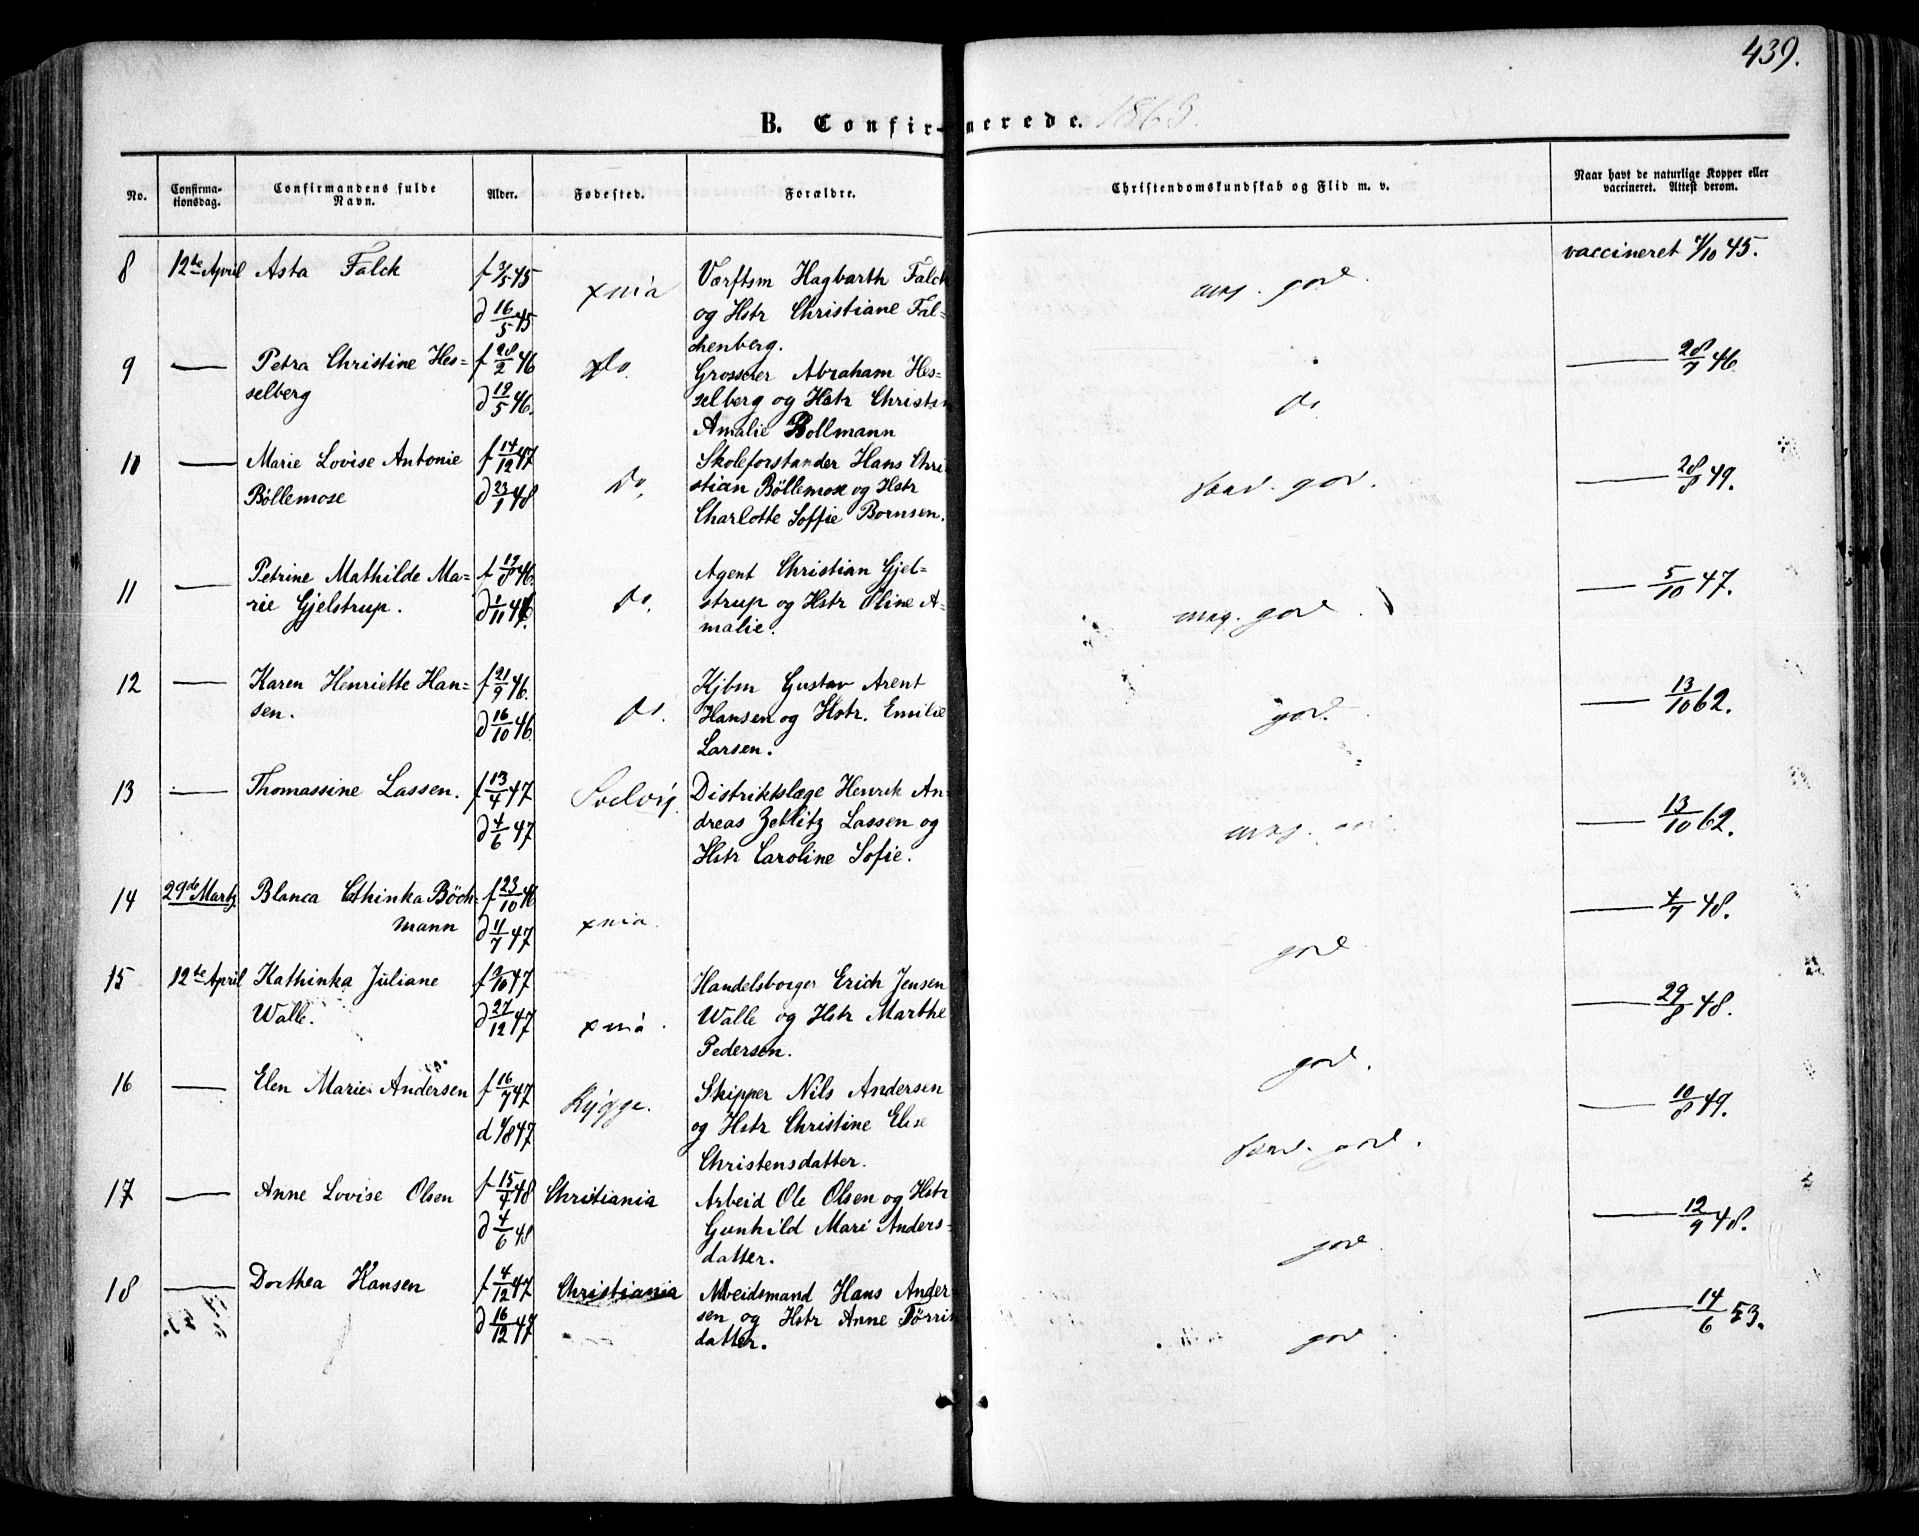 439.
B. Confirmerede. 1863.
No.
Confirma-
tionsdag.
Confirmandens fulde
Navn.
Alder.
Fødested.
Forældre.
Christendomskundskab og Flid m. v.
Naar havt de naturlige Kopper eller
vaccineret. Attest derom.
8 12te April Asta Falck f 3/5 45
d 16/5 45
xnia
Værftsm Hagbarth Falck
og Hstr Christiane Fal-
chenberg.
meg. god.
vaccineret 4/10 45.
9 — Petra Christine Hes-
selberg
f 28/2 46
d 19/5 46.
Do.
Grosserer Abraham Hes-
selberg og Hstr Christin
Amalie Bollmann
do
— 28/7 46
10 — Marie Lovise Antonie
Bøllemose
f 14/12 47
d 23/1 48
Do,
Skoleforstander Hans Chri
stian Bøllemose og Hstr
Charlotte Soffie Bornsen.
Saad. god.
— 28/8 49.
11 — Petrine Mathilde Ma-
rie Gjelstrup.
f 19/8 46.
d 1/11 46.
Do.
Agent Christian Gjel-
strup og Hstr Oline A-
malie.
meg. god.
— 5/10 47.
12 — Karen Henriette Han-
sen.
f 21/9 46.
d 16/10 46
Do.
Kjbm Gustav Arent
Hansen og Hstr. Emilie
Larsen.
god.
— 13/10 62.
13 — Thomassine Lassen.
f 13/4 47
d 4/6 47
Distriktslæge Henrik An
dreas Zetlitz Lassen og
Hstr Caroline Sofie.
meg. god
— 13/10 62.
14 29de Marts Blanca Cthinka Bøch-
mann
f 23/10 46
d 11/7 47
xnia.
god
— 4/7 48.
15 12te April Kathinka Juliane
Walle.
f 3/10 47
d 27/12 47
xnia.
Handelsborger Erich Jensen
Walle og Hstr Marthe
Pedersen.
god.
— 29/8 48.
16 — Elen Marie Andersen
f 16/7 47
d 1/8 47
Rygge.
Skipper Nils Andersen
og Hstr Christine Elise
Christensdatter.
Saad. god.
— 10/8 49.
17 — Anne Lovise Olsen
f 15/4 48
d 4/6 48
Christiania
Arbeid Ole Olsen og Hstr
Gunhild Mari Anders-
datter.
god
— 12/9 48.
18 — Dorthea Hansen
f 4/12 47
d 16/12 47
Christiania
Arbeidsmand Hans Ander
sen og Hstr Anne Tørris
datter.
god
— 14/6 53.